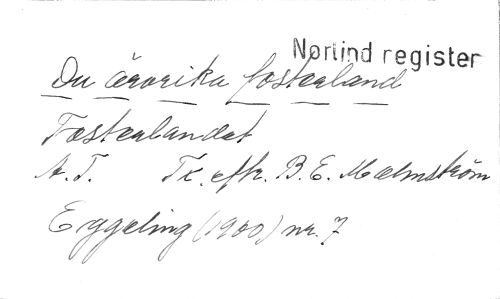 Norlind register
Du ärorika fosterland
Fosterlandet
A.T. Tx. eftr. B.E. Malmström
Eggeling (1900) nr. 7